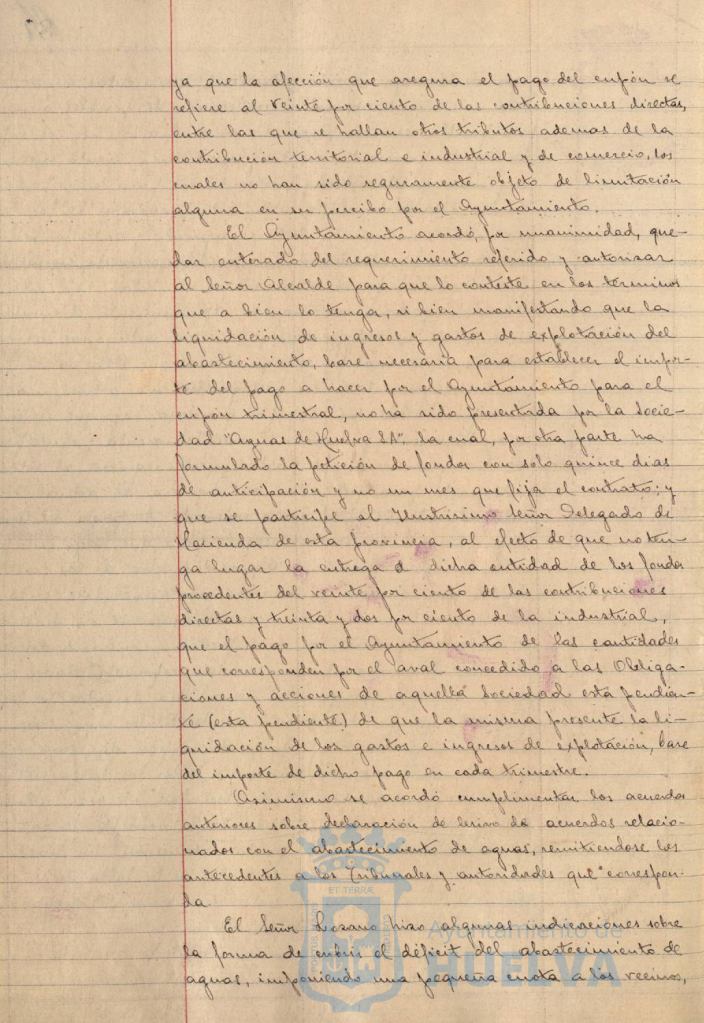 ya que la afección que asegura el pago del cupón se
refiere al veinte por ciento de las contribuciones directas,
entre las que se hallan otros tributos ademas de la
contribución territorial e industrial y de comercio, los
cuales no han sido seguramente objeto de limitación
alguna en su percibo por el Ayuntamiento.
El Ayuntamiento acordó, por unanimidad, que-
dar enterado del requerimiento referido y autorizar
al Señor Alcalde para que lo conteste en los términos
que a bien lo tenga, si bien manifestando que la
liquidación de ingresos y gastos de explotación del
abastecimiento, base necesaria para establecer el impor-
te del pago a hacer por el Ayuntamiento para el
cupón trimestral, no ha sido presentada por la Socie-
dad "Aguas de Huelva SA", la cual, por otra parte ha
formulado la petición de fondos con solo quince dias
de anticipación y no un mes que fija el contrato; y
que se participe al Ilustrisimo Señor Delegado de
Hacienda de esta provincia, al efecto de que no ten-
ga lugar la entrega a dicha entidad de los fondos
procedentes del veinte por ciento de las contribuciones
directas y treinta y dos por ciento de la industrial,
que el pago por el Ayuntamiento de las cantidades
que corresponden por el aval concedido a las Obliga-
ciones y acciones de aquella Sociedad está pendien-
te (esta pendiente) de que la misma presente la li-
quidación de los gastos e ingresos de explotación, base
del importe de dicho pago en cada trimestre.
Asimismo se acordó cumplimentar los acuerdos
anteriores sobre declaración de lesivo de acuerdos relacio-
nados con el abastecimiento de aguas, remitiendose los
antecedentes a los Tribunales y autoridades que correspon-
da.
El Señor Lozano hizo algunas indicaciones sobre
la forma de cubrir el déficit del abastecimiento de
aguas, imponiendo una pequeña cuota a los vecinos,
ET TERRÆ
Ayuntamiento de
HUELVA